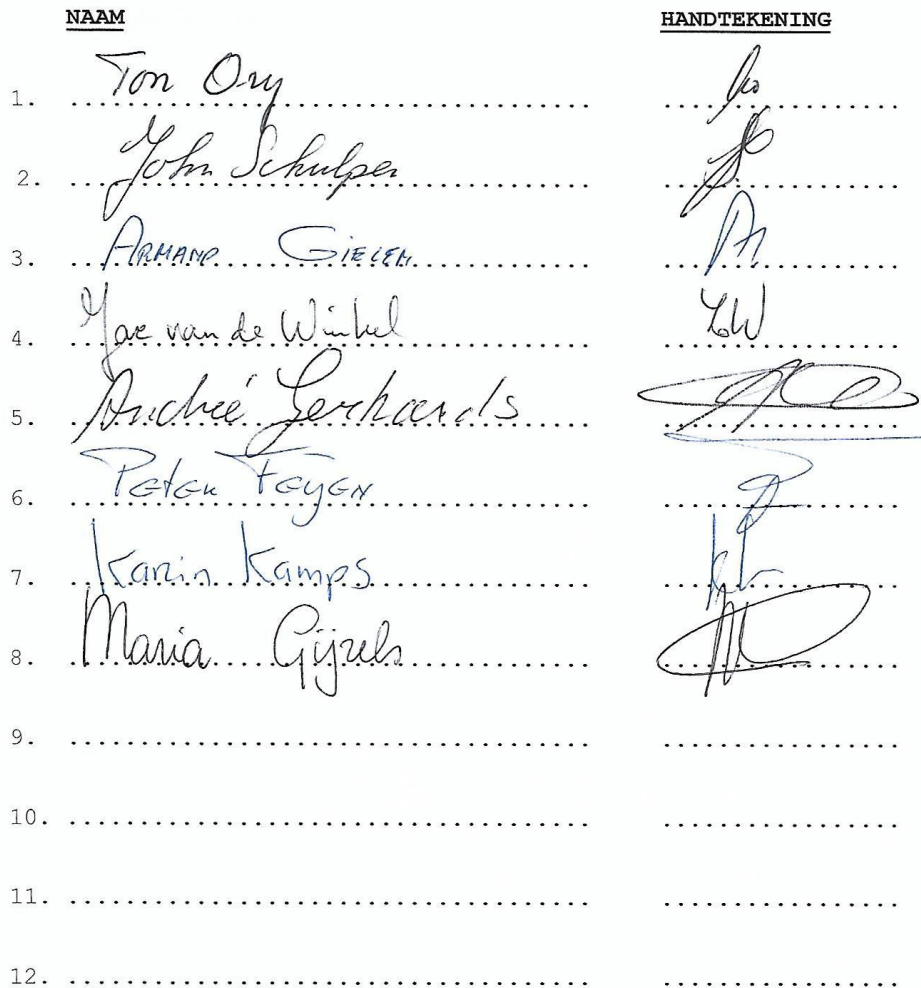 NAAM HANDTEKENING
1. Ton Ory
2. John Schulpen
3. ARMAND GIELEN
4. van de Winkel
5. André Gerhards
6. Peter Feyen
7. Karin Kamps
8. Maria Gijzels
9.
10.
11.
12.